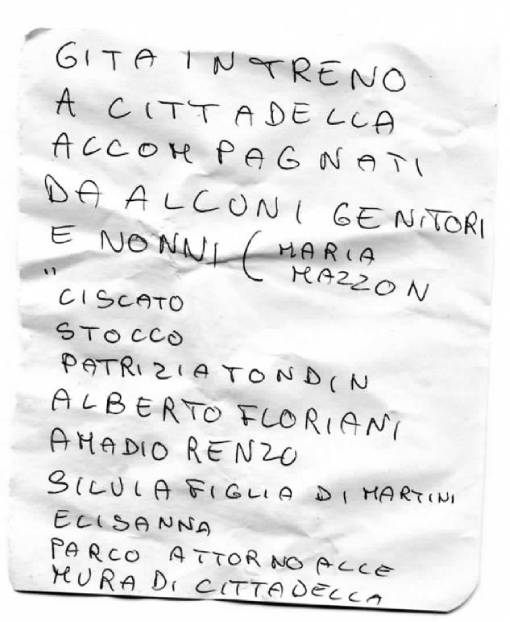 GITA IN TRENO
A CITTADELLA
ACCOMPAGNATI
DA ALCUNI GENITORI
E NONNI ( MARIA
MAZZON
" CISCATO
STOCCO
PATRIZIA TONDIN
ALBERTO FLORIANI
AMADIO RENZO
SILVIA FIGLIA DI MARTINI
ELISANNA
PARCO ATTORNO ALLE
MURA DI CITTADELLA